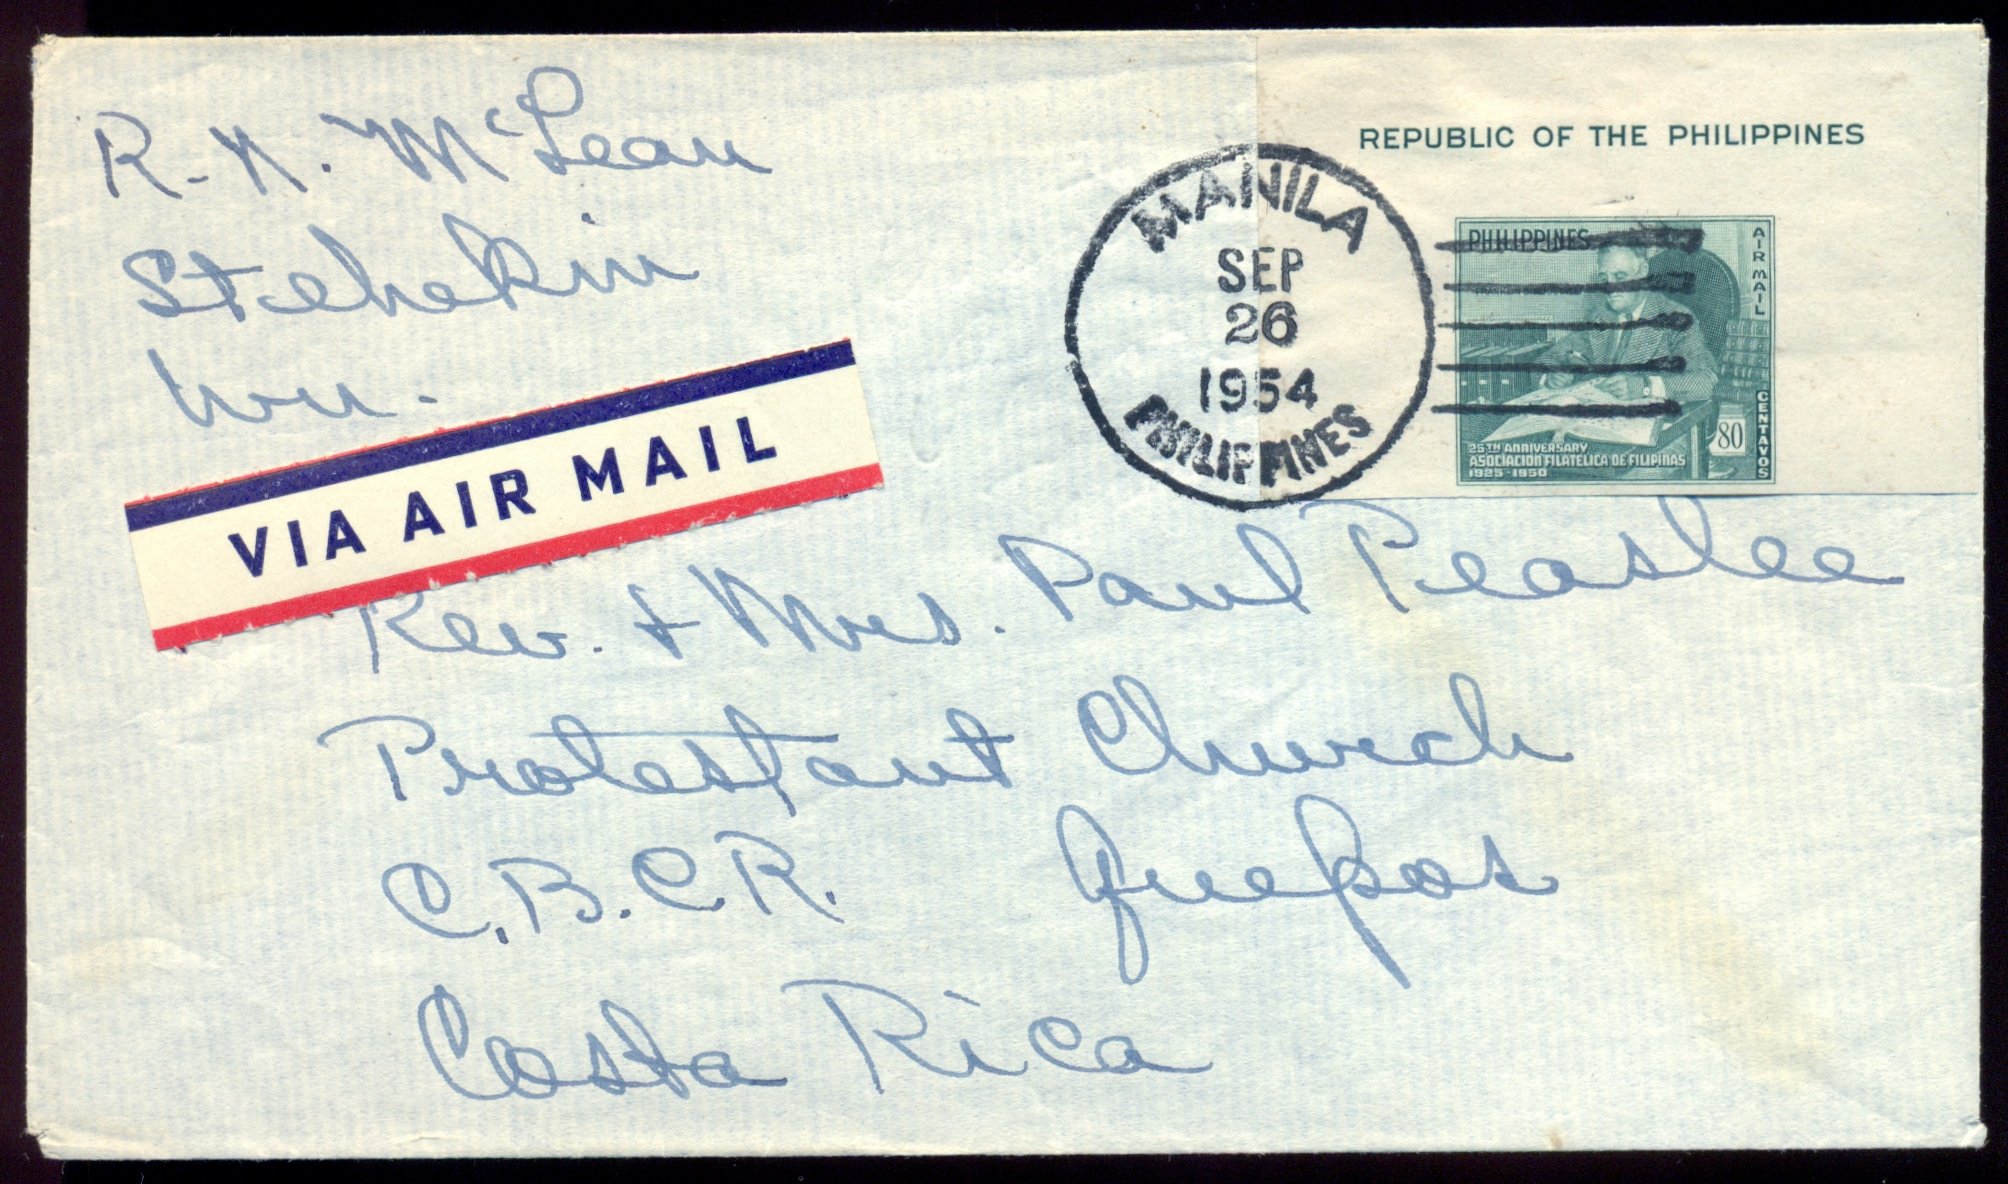 R. N. McLean
Stehekin
Wn.
VIA AIR MAIL
REPUBLIC OF THE PHILIPPINES
MANILA
SEP
26
1954
PHILIPPINES
PHILIPPINES
AIR MAIL
80
CENTAVOS
25TH ANNIVERSARY
ASOCIACION FILATELICA DE FILIPINAS
1925-1950
Rev. + Mrs. Paul Peaslee
Protestant Church
C.B.C.R. Quepos
Costa Rica